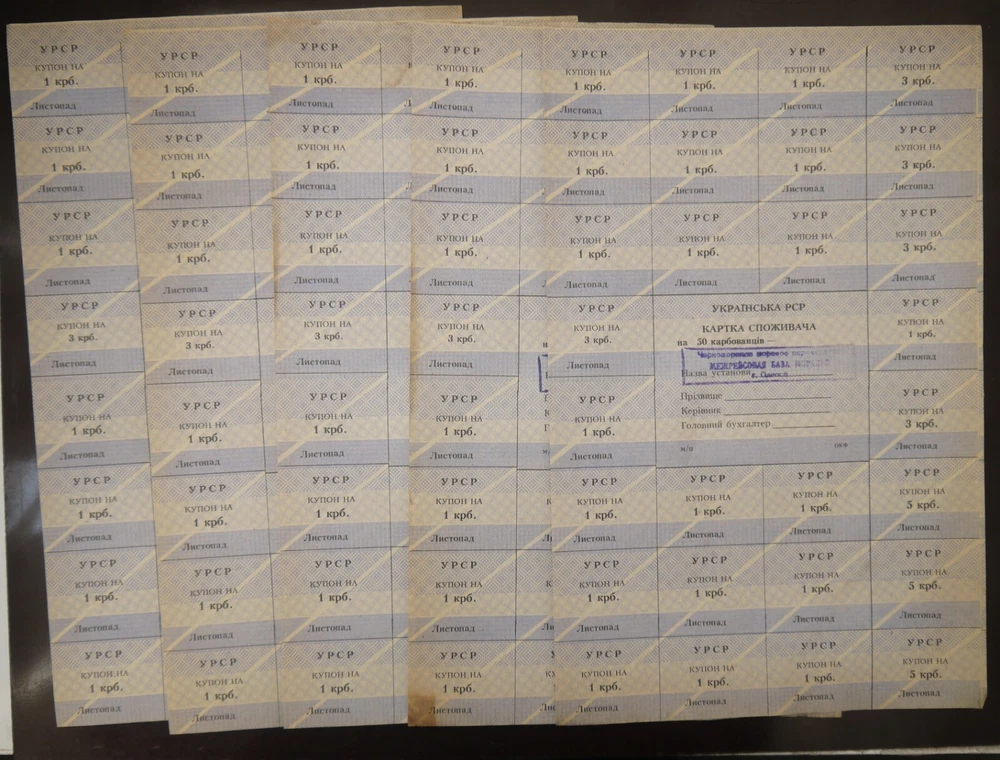 УРСР УРСР УРСР УРСР УРСР УРСР УРСР УРСР
КУПОН НА КУПОН НА КУПОН НА КУПОН НА КУПОН НА КУПОН НА КУПОН НА КУПОН НА
1 крб. 1 крб. 1 крб. 1 крб. 1 крб. 1 крб. 1 крб. 3 крб.
Листопад Листопад Листопад Листопад Листопад Листопад Листопад Листопад
УРСР УРСР УРСР УРСР УРСР УРСР УРСР УРСР
КУПОН НА КУПОН НА КУПОН НА КУПОН НА КУПОН НА КУПОН НА КУПОН НА КУПОН НА
1 крб. 1 крб. 1 крб. 1 крб. 1 крб. 1 крб. 1 крб. 3 крб.
Листопад Листопад Листопад Листопад Листопад Листопад Листопад Листопад
УРСР УРСР УРСР УРСР УРСР УРСР УРСР УРСР
КУПОН НА КУПОН НА КУПОН НА КУПОН НА КУПОН НА КУПОН НА КУПОН НА КУПОН НА
1 крб. 1 крб. 1 крб. 1 крб. 1 крб. 1 крб. 1 крб. 3 крб.
Листопад Листопад Листопад Листопад Листопад Листопад Листопад Листопад
УРСР УРСР УРСР УРСР УРСР
КУПОН НА КУПОН НА КУПОН НА КУПОН НА КУПОН НА
3 крб. 3 крб. 3 крб. 3 крб. 3 крб.
Листопад Листопад Листопад Листопад Листопад
УРСР УРСР УРСР УРСР УРСР
КУПОН НА КУПОН НА КУПОН НА КУПОН НА КУПОН НА
1 крб. 1 крб. 1 крб. 1 крб. 1 крб.
Листопад Листопад Листопад Листопад Листопад
УКРАЇНСЬКА РСР
КАРТКА СПОЖИВАЧА
на 50 карбованців
морское
МЕЖРЕЙСОВАЯ БАЗА
Назва установи г. Одесса
Прізвище
Керівник
Головний бухгалтер
м/п
УРСР
КУПОН НА
1 крб.
Листопад
УРСР
КУПОН НА
3 крб.
Листопад
УРСР УРСР УРСР УРСР УРСР УРСР УРСР УРСР
КУПОН НА КУПОН НА КУПОН НА КУПОН НА КУПОН НА КУПОН НА КУПОН НА КУПОН НА
1 крб. 1 крб. 1 крб. 1 крб. 1 крб. 1 крб. 1 крб. 5 крб.
Листопад Листопад Листопад Листопад Листопад Листопад Листопад Листопад
УРСР УРСР УРСР УРСР УРСР УРСР УРСР УРСР
КУПОН НА КУПОН НА КУПОН НА КУПОН НА КУПОН НА КУПОН НА КУПОН НА КУПОН НА
1 крб. 1 крб. 1 крб. 1 крб. 1 крб. 1 крб. 1 крб. 5 крб.
Листопад Листопад Листопад Листопад Листопад Листопад Листопад Листопад
УРСР УРСР УРСР УРСР УРСР УРСР УРСР УРСР
КУПОН НА КУПОН НА КУПОН НА КУПОН НА КУПОН НА КУПОН НА КУПОН НА КУПОН НА
1 крб. 1 крб. 1 крб. 1 крб. 1 крб. 1 крб. 1 крб. 5 крб.
Листопад Листопад Листопад Листопад Листопад Листопад Листопад Листопад